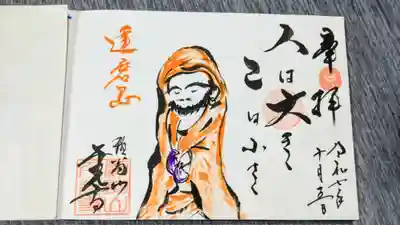 奉拝
令和七年
十月五日
人は大きく
己は小さく
達磨忌